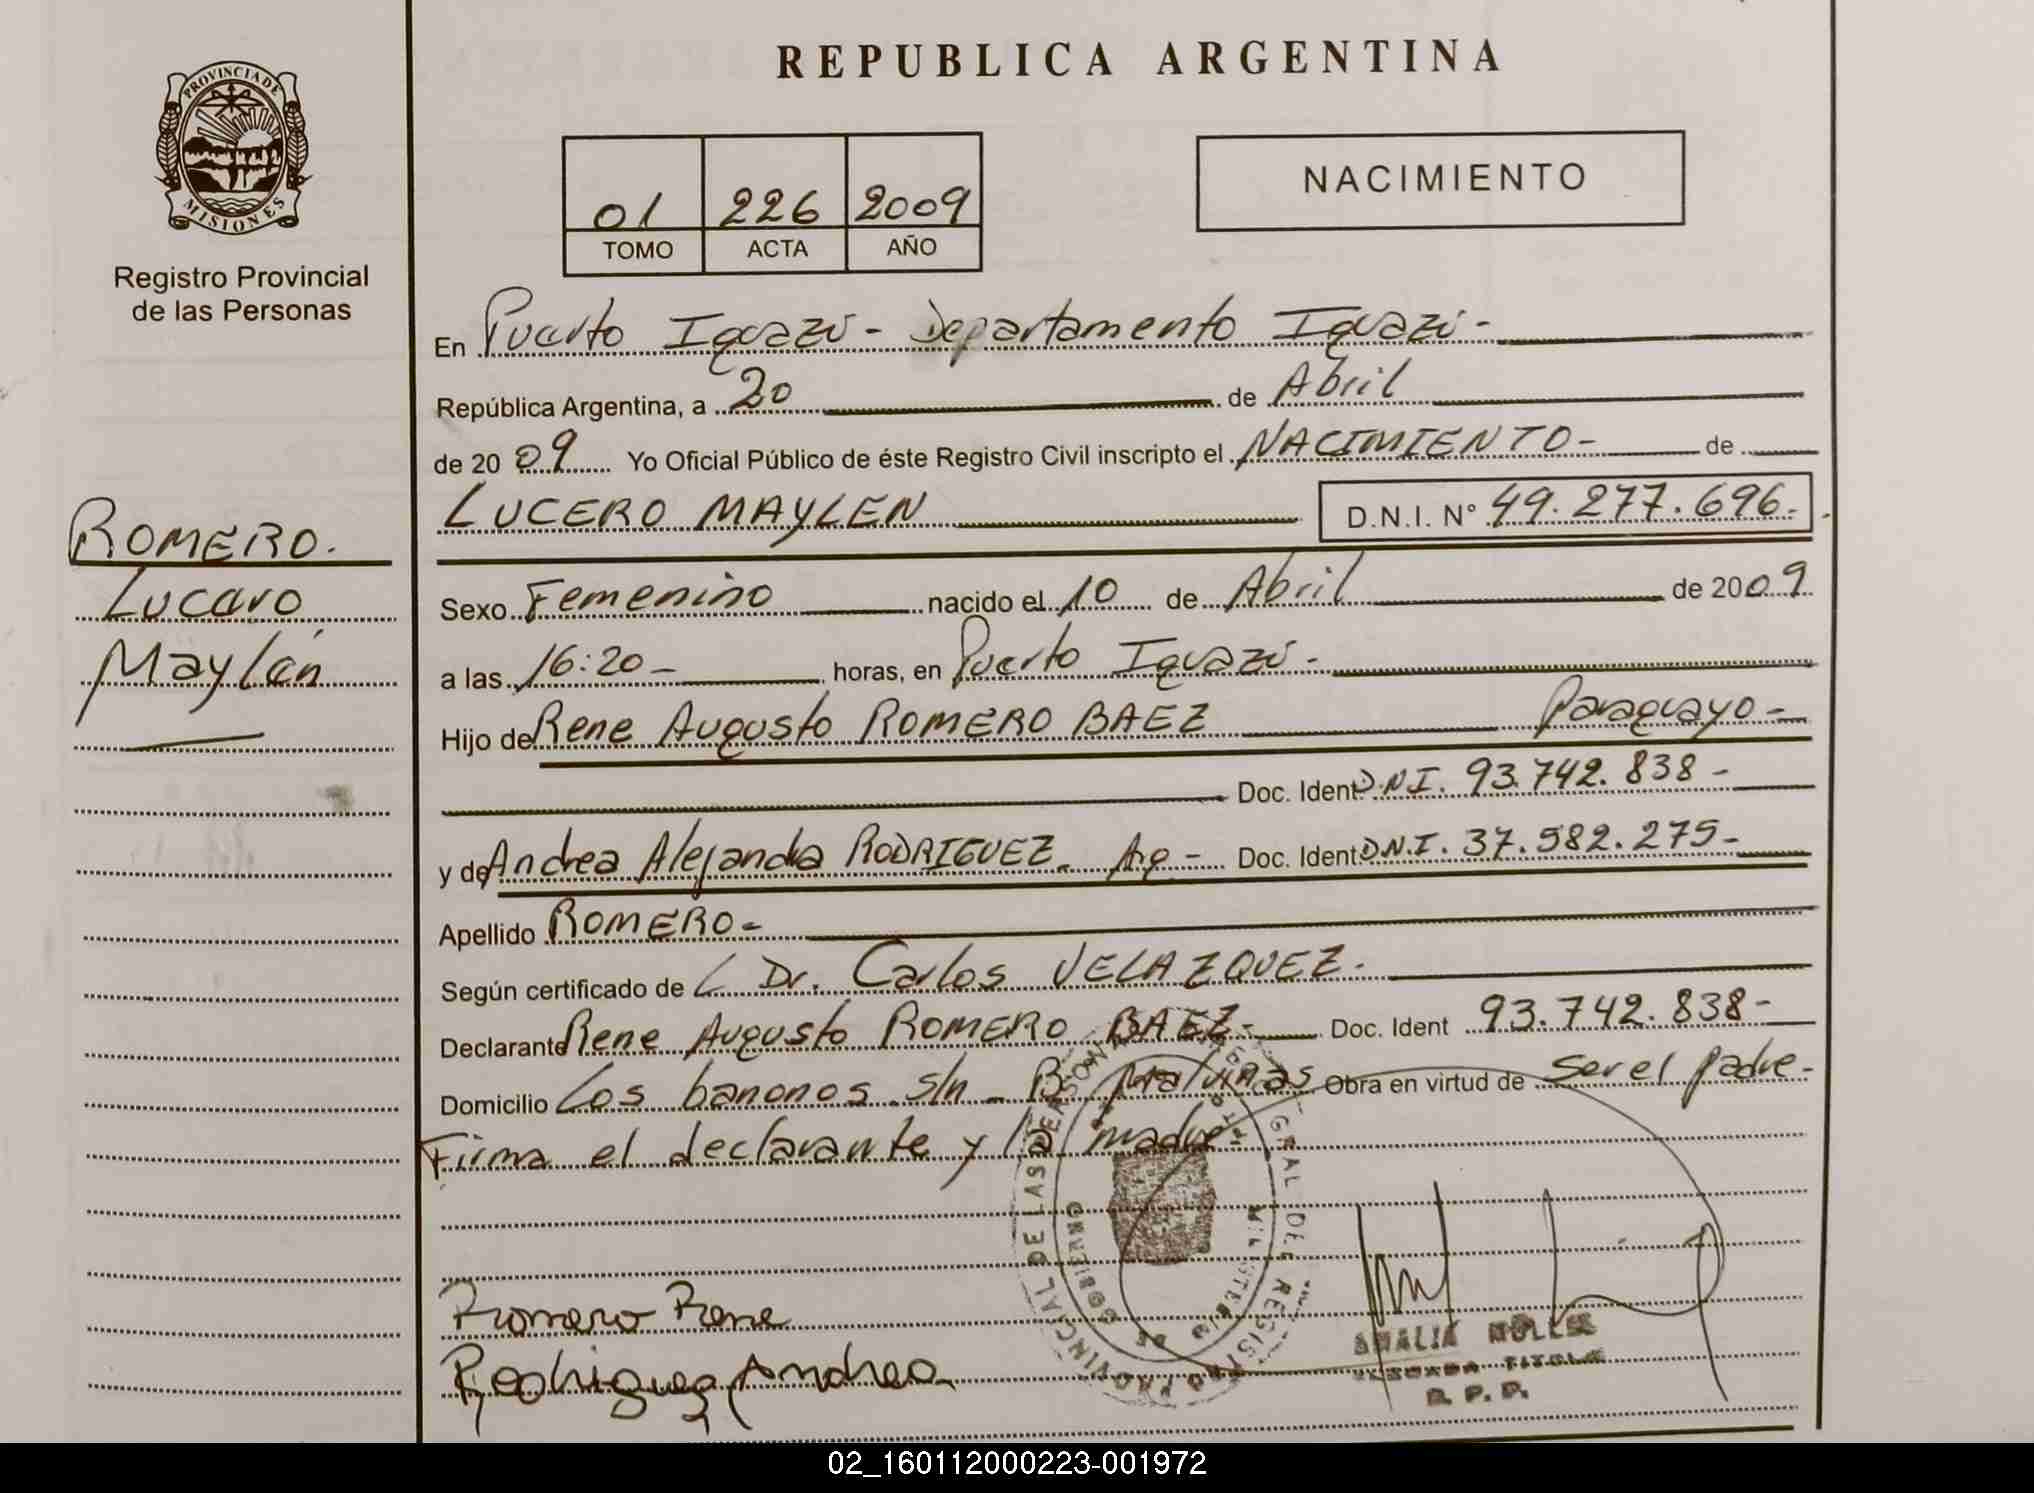 REPUBLICA ARGENTINA
PROVINCIA DE
MISIONES
Registro Provincial
de las Personas
01 226 2009
TOMO ACTA AÑO
NACIMIENTO
En Puerto Iguazú - Departamento Iguazú -
República Argentina, a 20 de Abril
de 2009 Yo Oficial Público de éste Registro Civil inscripto el NACIMIENTO - de
LUCERO MAYLEN D.N.I. N° 49.277.696.-
ROMERO.
Lucero
Maylén
Sexo Femenino nacido el 10 de Abril de 2009
a las 16:20 - horas, en Puerto Iguazú -
Hijo de Rene Augusto ROMERO BAEZ Paraguayo -
Doc. Ident D.N.I. 93.742.838 -
y de Andrea Alejandra RODRIGUEZ - Arg - Doc. Ident D.N.I. 37.582.275 -
Apellido ROMERO -
Según certificado de L Dr. Carlos VELAZQUEZ -
Declarante Rene Augusto ROMERO BAEZ - Doc. Ident 93.742.838 -
Domicilio Los bananos s/n - B° Malvinas Obra en virtud de ser el padre -
Firma el declarante y la madre -
Romero Rene
Rodriguez Andrea
GRAL DEL REGISTRO PROVINCIAL DE LAS PERSONAS
MINISTERIO DE GOBIERNO
AMALIA
R. P. P.
02_160112000223-001972